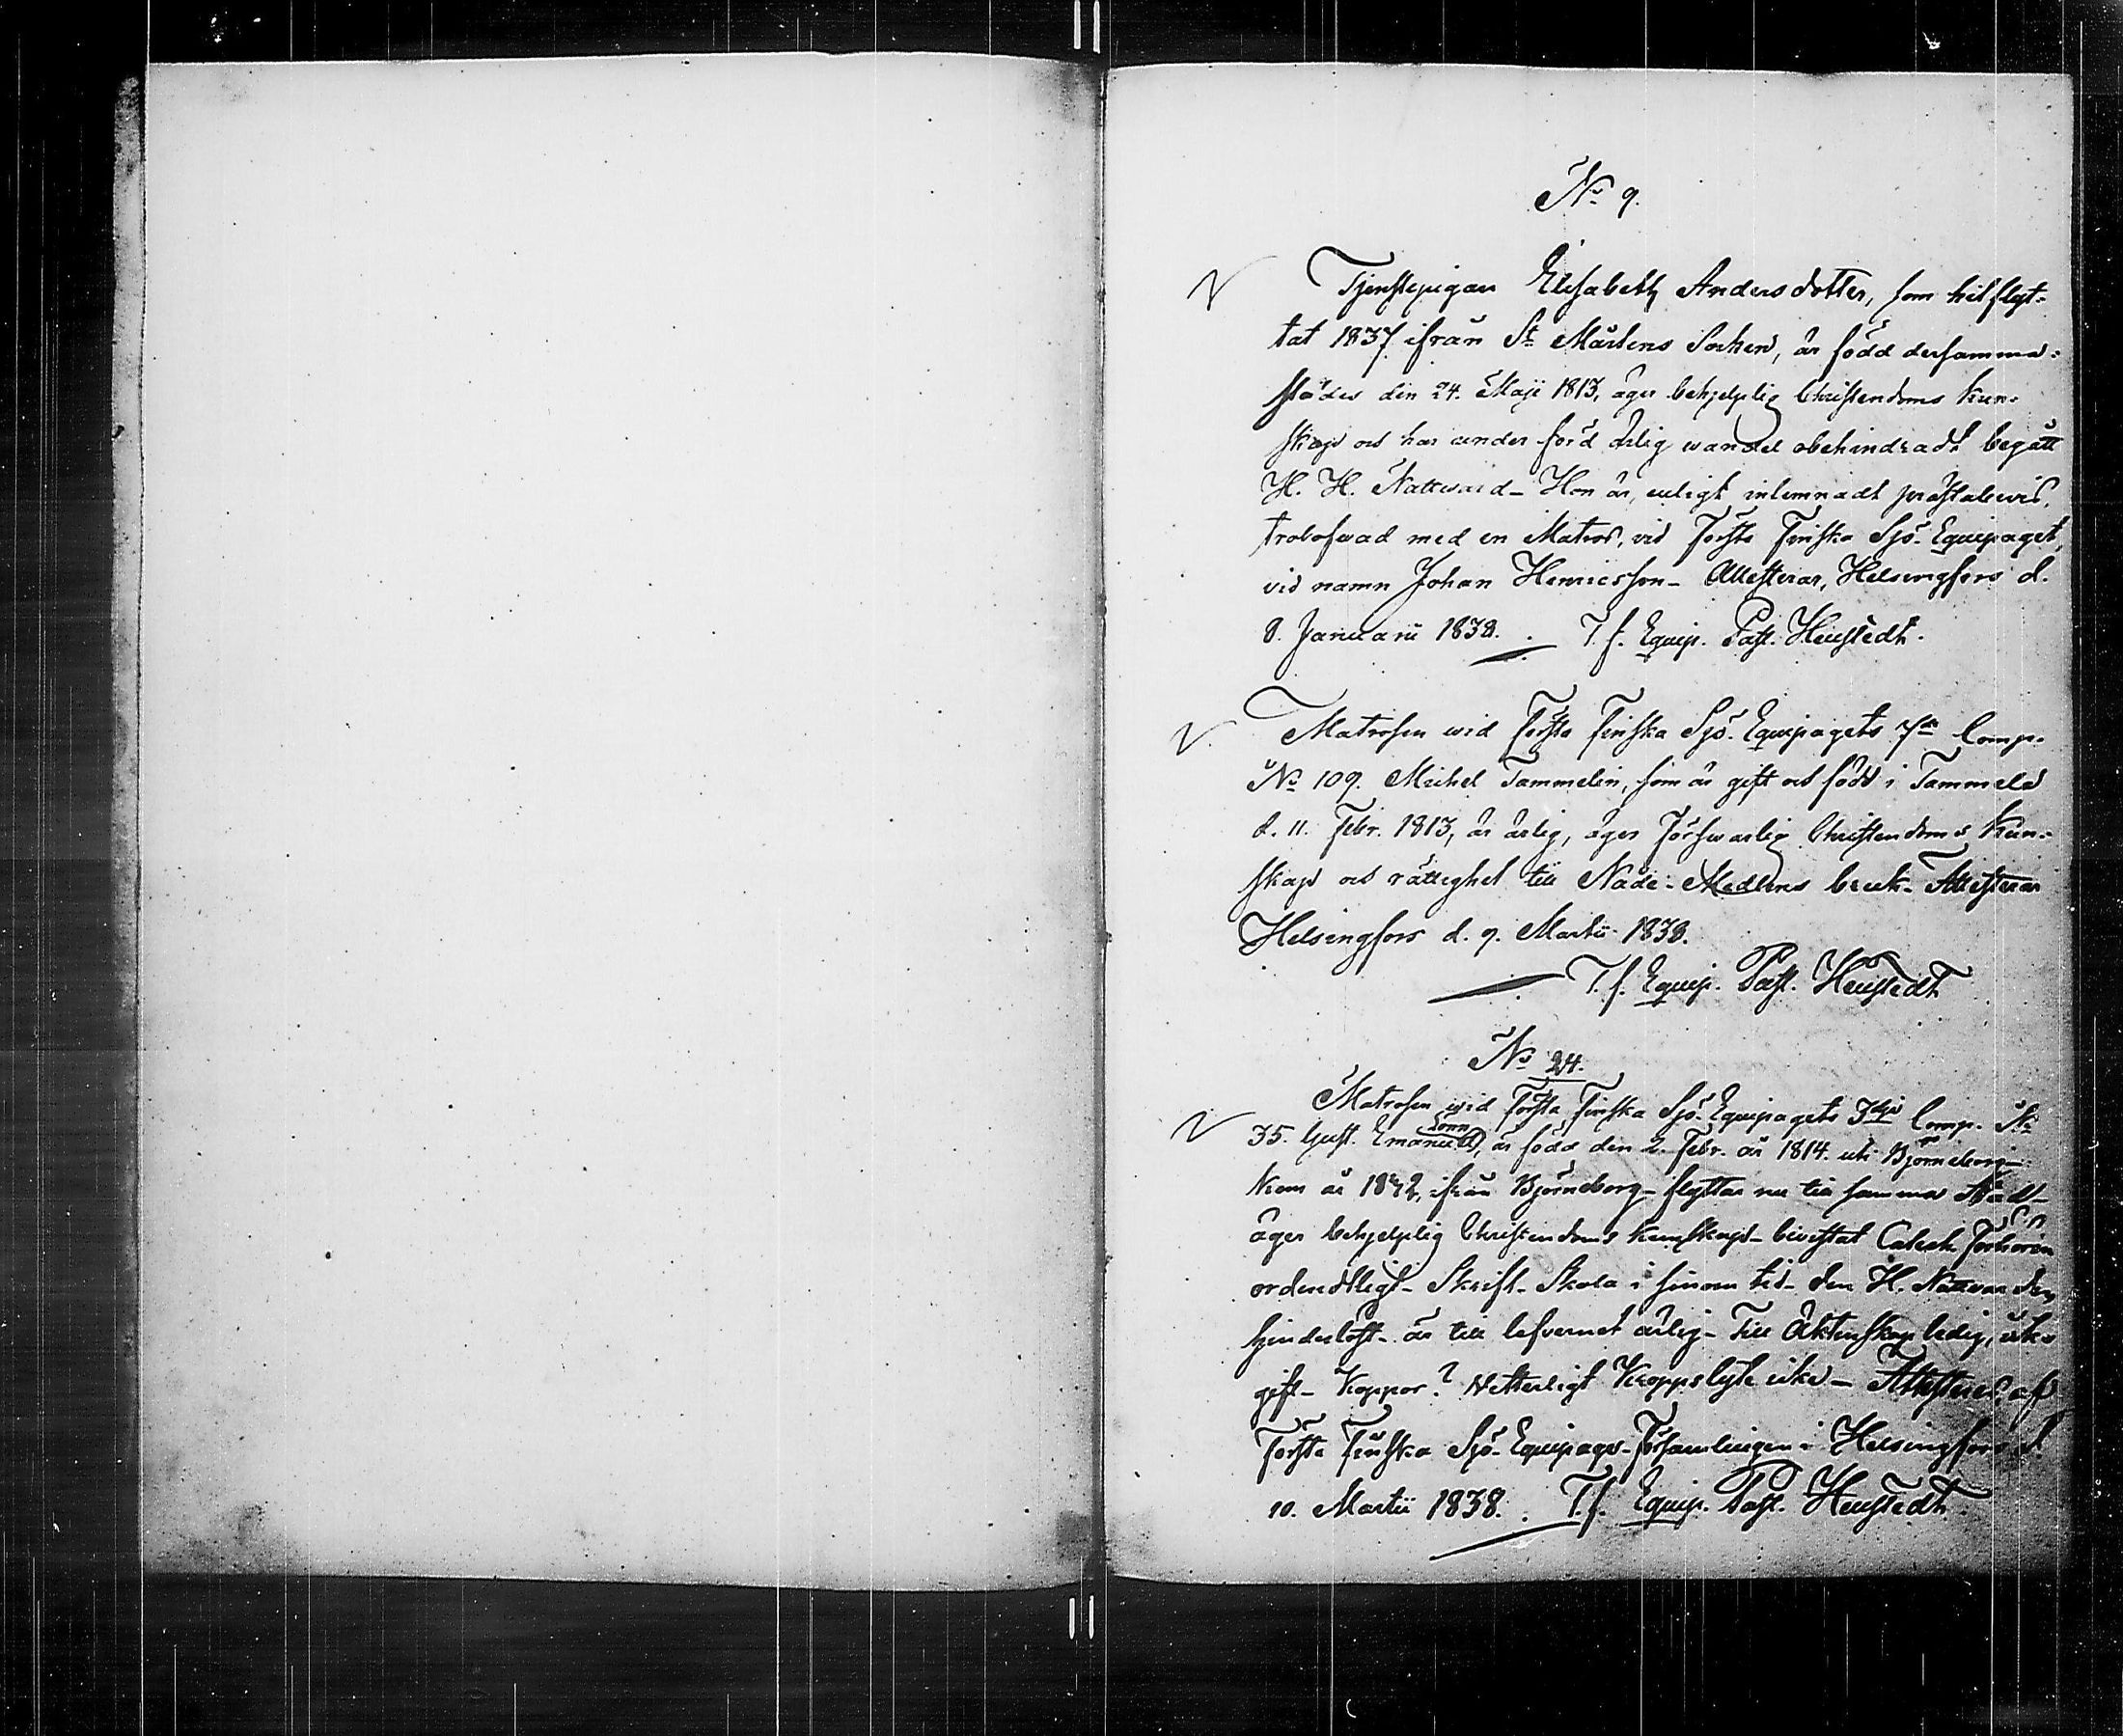 No 9.
Tjenstepigan Elisabeth Andersdotter, som hitflyt-
tat 1837 ifrån St Mårtens Socken, är född dersamma-
städes den 24. Maji 1813, äger behjelplig Christendoms kun-
skap och har under förd ärlig wandel obehindradt begått
H. H. Nattward - Hon är, enligt inlemnadt prästabevis,
trolofwad med en Matros, vid Första Finska Sjö-Equipaget,
vid namn Johan Henricsson - Attesterar, Helsingfors d.
8. Januarii 1838. T. f. Equip. Past.
Matrosen wid Första Finska Sjö-Equipagets 7de Comp.
No 109. Michel Tammelin, som är gift och född i Tammela
d. 11. Febr. 1813, är ärlig, äger försvarlig Christendoms kun-
skap och rättighet till Nåde-Medlens bruk - Attesterar
Helsingfors d. 9. Martii 1838.
T. f. Equip. Past.
No 24.
Matrosen wid Första Finska Sjö-Equipagets 3dje Comp. No
35. Gust. Emanuel, är född den 2. Febr. år 1814. uti Björneborg -
kom år ifrån Björneborg - flyttar nu till samma Stad -
äger behjelplig Christendoms kunskap - bivistat Catech. Förhören
ordendtligt - Skrift-Skola i sinom tid - den H. Nattvarden
hinderlöst - är till lefvernet ärlig - Till Äktenskap ledig, icke
gift - Koppor? Vetterligt Kroppslyte icke - Attesteras af
Första Finska Sjö-Equipage-Församlingen i Helsingfors d.
10. Martii 1838. T. f. Equip. Past.